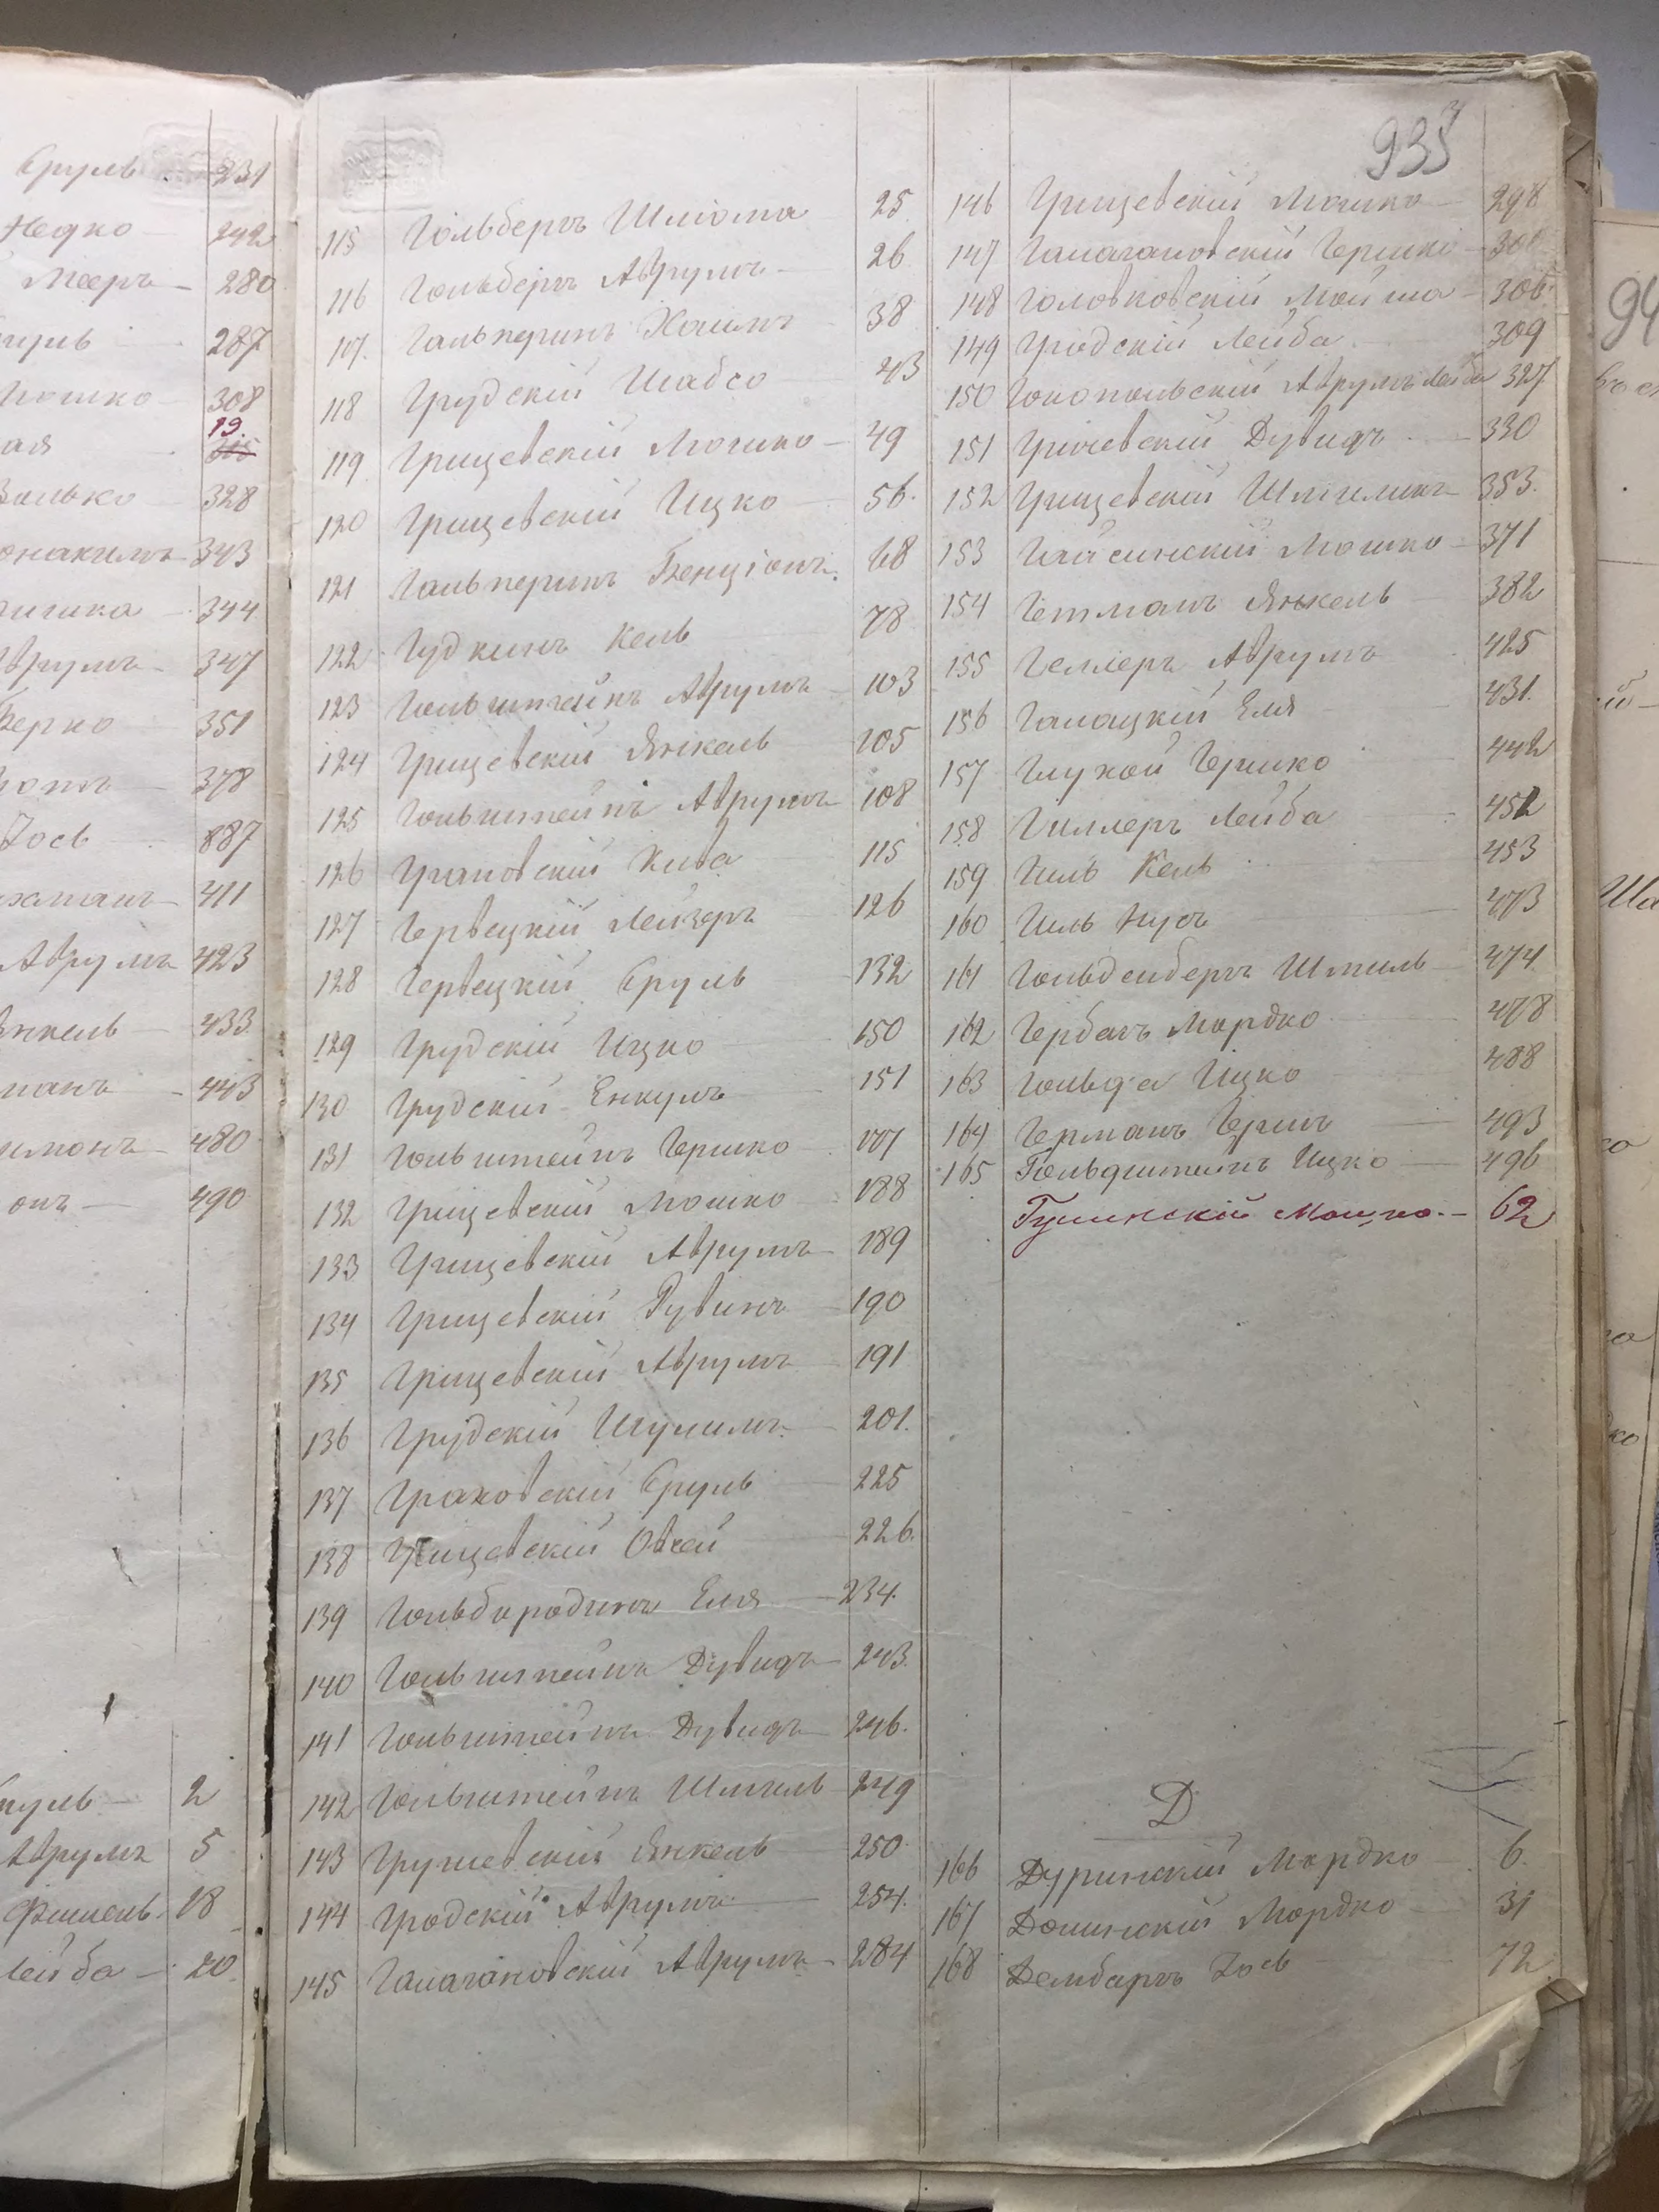 Сруль 231
Недко 242
Мееръ 280
287
Мошко 308
19.
315
Волько 328
343
344
Аврумъ 347
Берко 351
378
Іось 887
411
Аврумъ 423
Янкель 433
443
480
490
Сруль 2
Аврумъ 5
Фишель 18
Лейба 20
935
115 Гольбергъ Шліома 25
116 Гольбергъ Аврумъ 26
117. Гальперинъ Хаимъ 38
118 Грудскій Шабсо 43
119 Грищевскій Мошко 49
120 Грищевскій Ицко 56.
121 Гальперинъ Бенціонъ. 68
122 Гудкинъ Кель 78
123 Гольштейнъ Аврумъ 103
124 Грищевскій Янкель 105
125 Гольштейнъ Аврумъ 108
126 Грановскій Кива 115
127 Гервецкій Лейзеръ 126
128 Гервецкій Сруль 132
129 Грудскій Ицко 150
130 Грудскій Енкумъ 151
131 Гольштейнъ Гершко 187
132 Грищевскій Мошко 188
133 Грищевскій Аврумъ 189
134 Грищевскій Рувинъ 190
135 Грищевскій Аврумъ 191
136 Грудскій Шулимъ 201.
137 Граховскій Сруль 225
138 Грищевскій Овсей 226.
139 Гольбородинъ Еля 234.
140 Гольштейнъ Дувидъ 243.
141 Гольштейнъ Дувидъ 246.
142 Гольштейнъ Шмиль 249
143 Грушевскій Янкель 250
144 Гродскій Аврумъ 254.
145 Галагановскій Аврумъ 284
146 Грищевскій Мошко 298
147 Галагановскій Гершко 300
148 Головковскій Мойша 306.
149 Гродскій Лейба 309
150 Гонопольскій Аврумъ Лейба 327
151 Грачевскій Дувидъ 330
152 Грищевскій Шмиликъ 353.
153 Гайсинскій Мошко 371
154 Гетманъ Янкель 382
155 Геллеръ Аврумъ 425
156 Галацкій Еля 431.
157 Глухой Гершко 442
158 Гиллеръ Лейба 452
159 Гиль Кель 453
160 Гиль Нусь 473
161 Гольденбергъ Шмиль 474
162 Гербачъ Мордко 478
163 Гольда Ицко 488
164 Германъ Гершъ 493
165 Гольдштейнъ Ицко 496
Гулинскій Мошко. 62
Д
166 Дуринскій Мордко 6.
167 Долинскій Мордко 31
168 Дембаргъ Іось 72
94